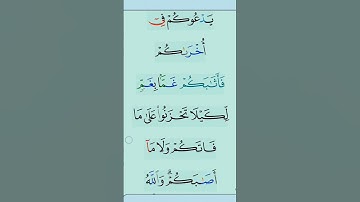 يَدْعُوكُمْ فِىٓ
أُخْرَىٰكُمْ
فَأَثَـٰبَكُمْ غَمًّۢا بِغَمٍّ
لِّكَيْلَا تَحْزَنُوا۟ عَلَىٰ مَا
فَاتَكُمْ وَلَا مَآ
أَصَـٰبَكُمْ ۗ وَٱللَّهُ